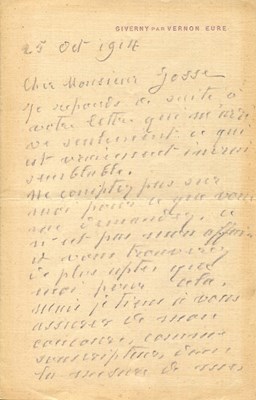 GIVERNY PAR VERNON EURE
25 Oct 1914
Cher Monsieur Josse
Je reponds de suite à
votre lettre qui m'arri
ve seulement ce qui
est vraiment invrai
semblable.
Ne comptez pas sur
moi pour ce que vous
me demandez, ce
n'est pas mon affaire
et vous trouverez
de plus aptes que
moi pour cela.
mais je tiens à vous
assurer de mon
concours, comme
souscripteur, dans
la mesure de mes